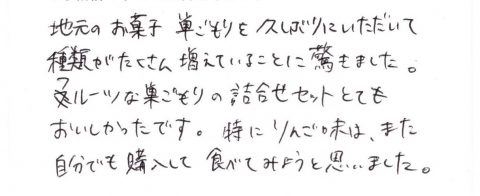 地元のお菓子 巣ごもりを久しぶりにいただいて
種類がたくさん増えていることに驚きました。
フルーツな巣ごもりの詰合せセットとても
おいしかったです。特にりんご味は、また
自分でも購入して食べてみようと思いました。